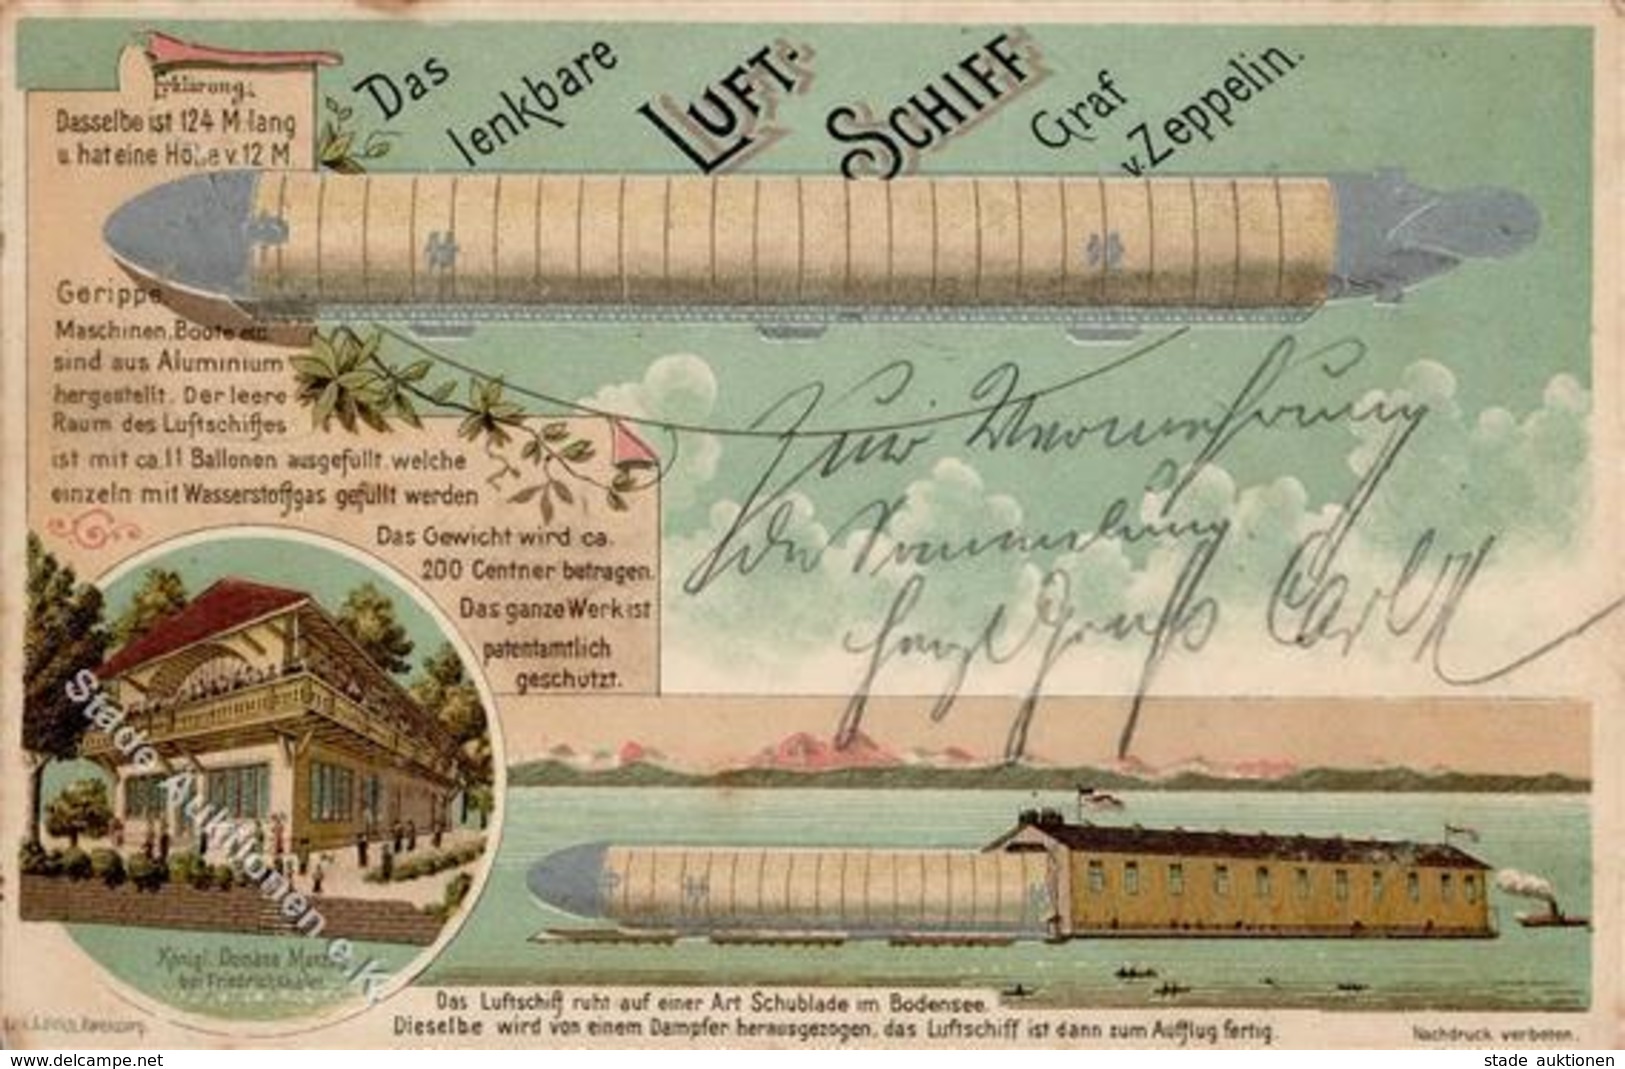 Das lenkbare LUFT- SCHIFF Graf v. Zeppelin.
Erklärung.
Dasselbe ist 124 M. lang
u. hat eine Höhe v. 12 M
Gerippe,
Maschinen, Boote etc.
sind aus Aluminium
hergestellt. Der leere
Raum des Luftschiffes
ist mit ca. 11 Ballonen ausgefüllt, welche
einzeln mit Wasserstoffgas gefüllt werden
Das Gewicht wird ca.
200 Centner betragen.
Das ganze Werk ist
patentamtlich
geschützt.
Zur Vermehrung
der Sammlung.
Herzl Gruß Carl
Königl. Domäne Manzell
bei Friedrichshafen
Das Luftschiff ruht auf einer Art Schublade im Bodensee.
Dieselbe wird von einem Dampfer herausgezogen, das Luftschiff ist dann zum Aufflug fertig.
Nachdruck verboten.
Stade Auktionen e/K
www.delcampe.net
stade auktionen